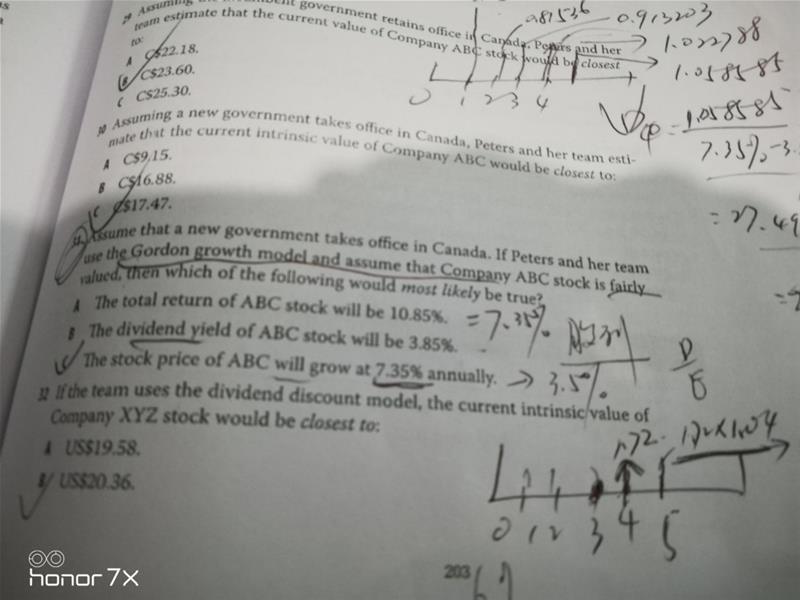 29 Assuming the incumbent government retains office in Canada, Peters and her
team estimate that the current value of Company ABC stock would be closest
to:
A C$22.18.
B C$23.60.
C C$25.30.
30 Assuming a new government takes office in Canada, Peters and her team esti-
mate that the current intrinsic value of Company ABC would be closest to:
A C$9.15.
B C$16.88.
C C$17.47.
31 Assume that a new government takes office in Canada. If Peters and her team
use the Gordon growth model and assume that Company ABC stock is fairly
valued, then which of the following would most likely be true?
A The total return of ABC stock will be 10.85%. = 7.35%
B The dividend yield of ABC stock will be 3.85%.
C The stock price of ABC will grow at 7.35% annually. → 3.5%
32 If the team uses the dividend discount model, the current intrinsic value of
Company XYZ stock would be closest to:
A US$19.58.
B US$20.36.
0.913203
1.022788
1.058585
0 1 2 3 4
1.058585
7.35%-3.
= 27.49
1.72 1.72×1.04
0 1 2 3 4 5
203
honor 7X